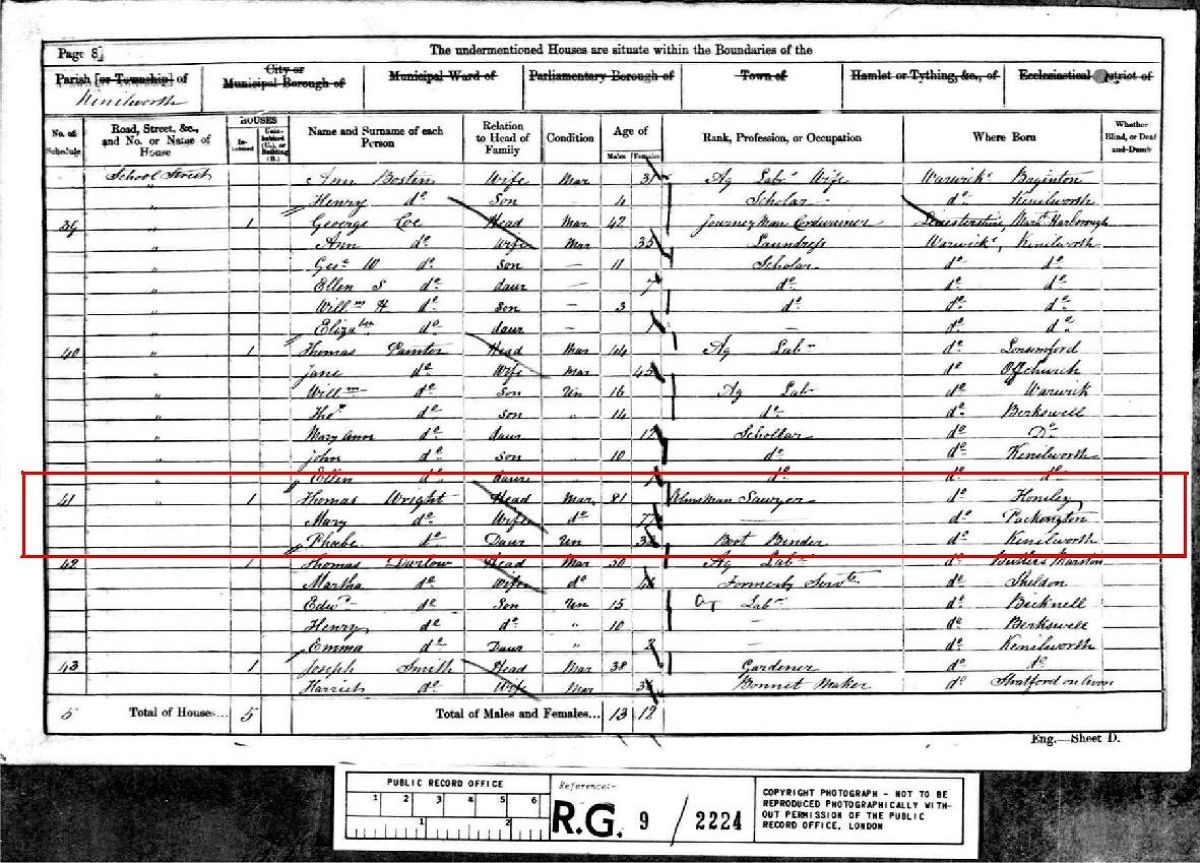 Page 8]
The undermentioned Houses are situate within the Boundaries of the
Parish [or Township] of
City or Municipal Borough of
Municipal Ward of
Parliamentary Borough of
Town of
Hamlet or Tything, &c., of
Ecclesiastical District of
Kenilworth
No. of Schedule
Road, Street, &c., and No. or Name of House
HOUSES
Inhabited
Uninhabited (U.), or Building (B.)
Name and Surname of each Person
Relation to Head of Family
Condition
Age of
Males
Females
Rank, Profession, or Occupation
Where Born
Whether Blind, or Deaf-and-Dumb
School Street Ann Bostin Wife Mar 31 Ag Labr Wife Warwicks Baginton
" Henry do Son — 4 Scholar do Kenilworth
39 " 1 George Coe Head Mar 42 Journeyman Cordwainer Leicestershire, Mart Harborough
" Ann do Wife Mar 35 Laundress Warwicks, Kenilworth
" Geo W do Son — 11 Scholar do do
" Ellen S do daur — 7 do do do
" Willm H do Son — 3 do do do
" Elizabth do daur — 1 do do
40 " 1 Thomas Painter Head Mar 44 Ag Lab do
" Jane do Wife Mar 45 do Offchurch
" Willm do son Un 16 Ag Lab do Warwick
" Thos do son " 14 do do Berkswell
" Mary Ann do daur " 12 Schollar do Do
" John do son " 10 do do Kenilworth
" Ellen do daur 1 do do do
41 " 1 Thomas Wright Head Mar 81 Almsman Sawyer do Honiley
Mary do Wife do 77 — do Packington
Phoebe do Daur Un Boot Binder do Kenilworth
42 1 Thomas Darlow Head Mar 50 Ag Lab do Butlers Marston
Martha do Wife do Formerly Servt do Sheldon
Edwd do Son Un 15 Ag Lab do Bicknell
Henry do do " 10 — do Berkswell
Emma do Daur " 2 — do Kenilworth
43 1 Joseph Smith Head Mar 38 Gardener do do
Harriet do Wife Mar Bonnet Maker do Stratford on Avon
5 Total of Houses... 5 Total of Males and Females... 13 12
Eng.—Sheet D.
PUBLIC RECORD OFFICE
1 2 3 4 5 6
1 2
Reference:-
R.G. 9 / 2224
COPYRIGHT PHOTOGRAPH - NOT TO BE
REPRODUCED PHOTOGRAPHICALLY WITH-
OUT PERMISSION OF THE PUBLIC
RECORD OFFICE, LONDON